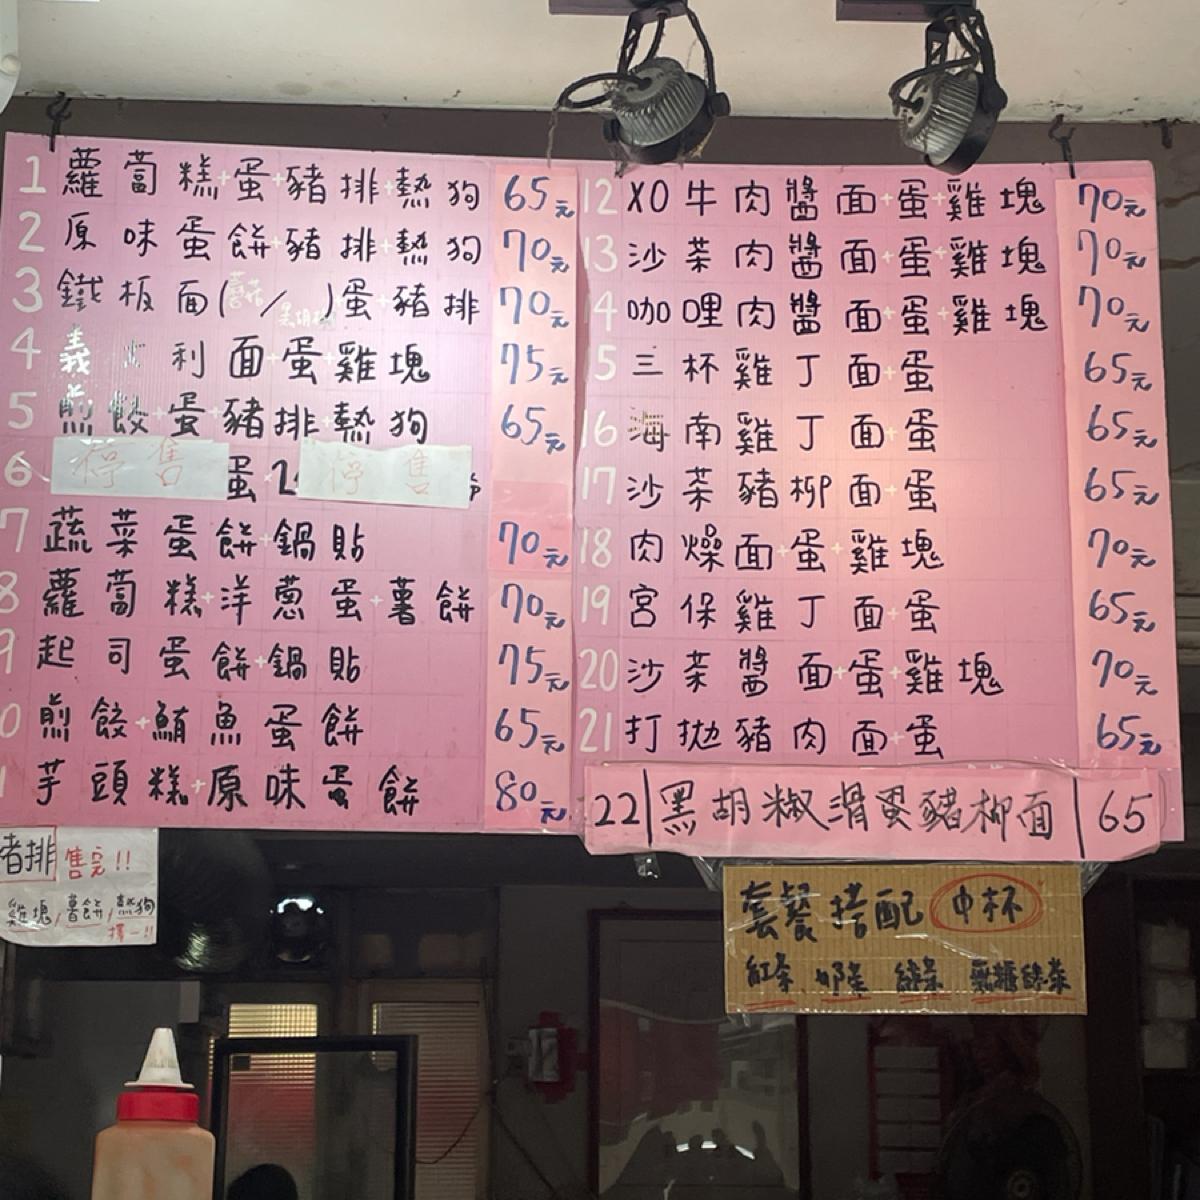 1 蘿蔔糕+蛋+豬排+熱狗 65元
2 原味蛋餅+豬排+熱狗 70元
3 鐵板面(蘑菇/黑胡椒)蛋+豬排 70元
4 義 利面+蛋+雞塊 75元
5 煎餃+蛋+豬排+熱狗 65元
6 停售 蛋 停售
7 蔬菜蛋餅+鍋貼 70元
8 蘿蔔糕+洋蔥蛋+薯餅 70元
9 起司蛋餅+鍋貼 75元
0 煎餃+鮪魚蛋餅 65元
1 芋頭糕+原味蛋餅 80元
豬排 售完!!
雞塊/薯餅/熱狗
擇一!!
12 XO牛肉醬面+蛋+雞塊 70元
13 沙茶肉醬面+蛋+雞塊 70元
14 咖哩肉醬面+蛋+雞塊 70元
15 三杯雞丁面+蛋 65元
16 海南雞丁面+蛋 65元
17 沙茶豬柳面+蛋 65元
18 肉燥面+蛋+雞塊 70元
19 宮保雞丁面+蛋 65元
20 沙茶醬面+蛋+雞塊 70元
21 打拋豬肉面+蛋 65元
22 黑胡椒滑蛋豬柳面 65
套餐搭配 中杯
紅茶 奶茶 綠茶 無糖綠茶